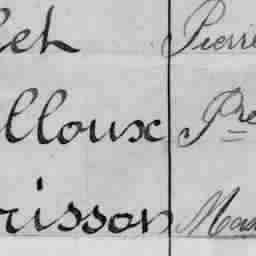 let Pierre
lloux Pre
risson Mar